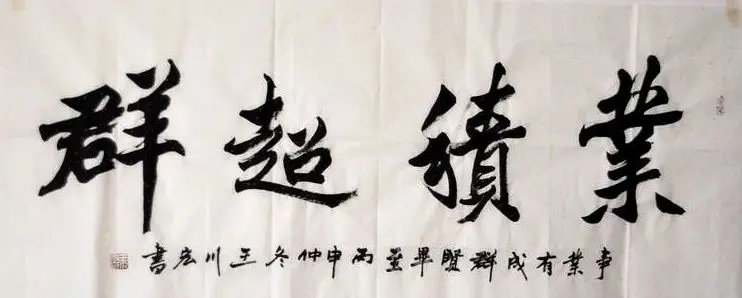 業積超群
事業有成群賢畢至丙申仲冬王川宏書